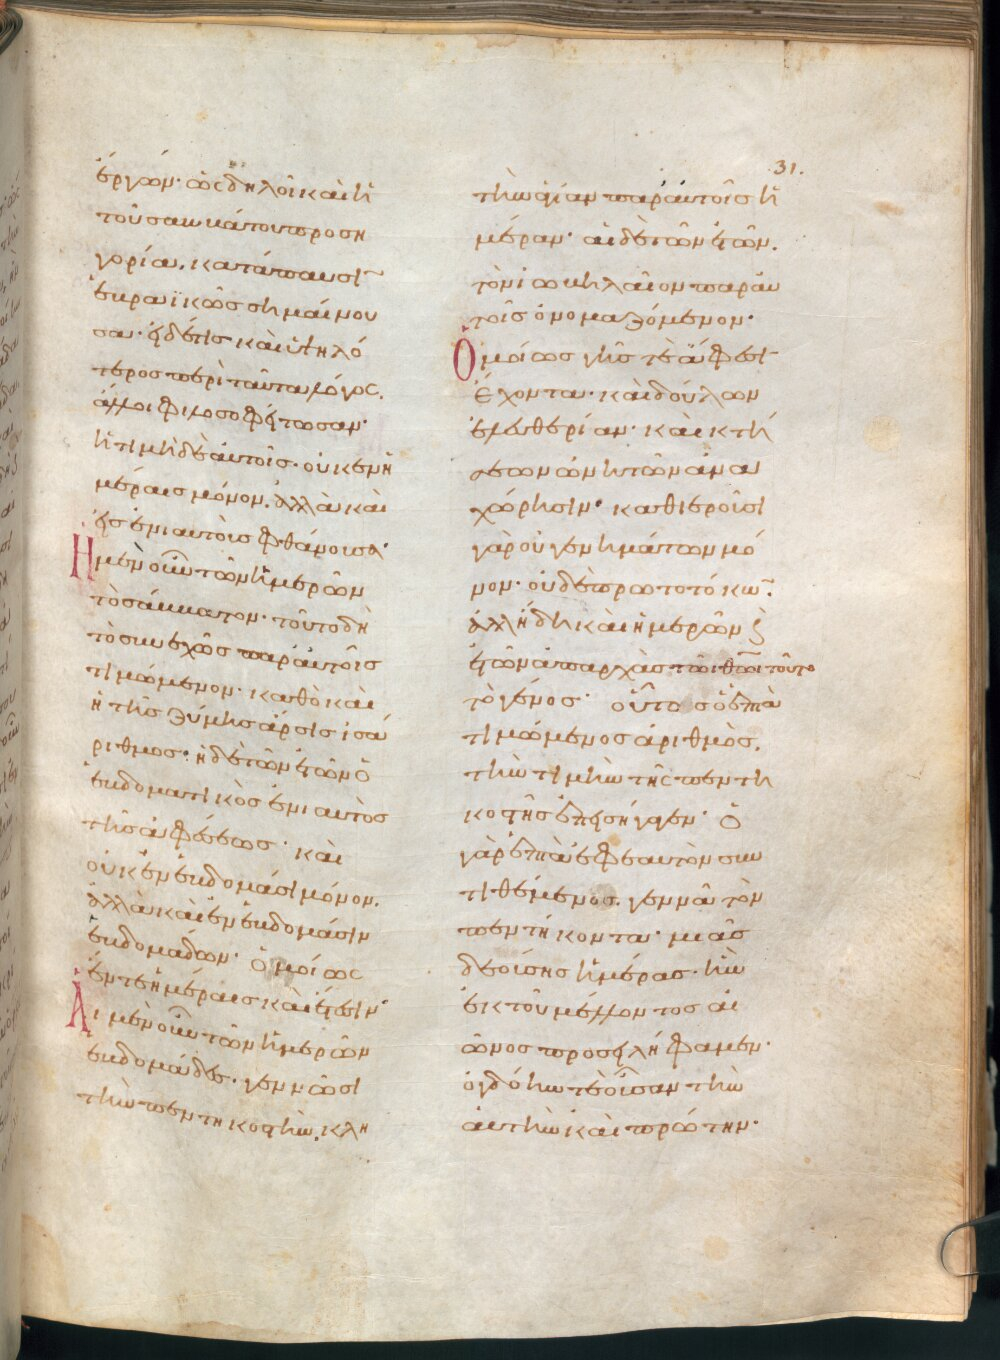 31.
ἔργων· ὡς δηλοῖ καὶ ἡ
τοῦ σαββάτου προση
γορία, κατάπαυσιν
ἑβραϊκῶς σημαίνου
σα· ἢ δέ τις καὶ ὑψηλό
τερος περὶ ταῦτα λόγος.
ἄλλοι φιλοσοφήτωσαν·
ἡ τιμὴ δὲ αὐτοῖς· οὐκ ἐν ἡ
μέραις μόνον, ἀλλὰ καὶ
εἰς ἐνιαυτοὺς φθάνουσα·
Ἡ μὲν οὖν τῶν ἡμερῶν
τὸ σάββατον· τοῦτο δὴ
τὸ συνεχῶς παρ' αὐτοῖς
τιμώμενον· καθὸ καὶ
ἡ τῆς ζύμης ἄρσις ἰσά
ριθμος· ἡ δὲ τῶν ἐτῶν ὁ
ἑβδοματικὸς ἐνιαυτὸς
τῆς ἀφέσεως· καὶ
οὐκ ἐν ἑβδομάσι μόνον,
ἀλλὰ καὶ ἐν ἑβδομάσιν
ἑβδομάδων· ὁμοίως
ἔν τε ἡμέραις καὶ ἔτεσιν·
Αἱ μὲν οὖν τῶν ἡμερῶν
ἑβδομάδες· γεννῶσι
τὴν πεντηκοστὴν, κλη
τὴν ἁγίαν παρ' αὐτοῖς ἡ
μέραν· αἱ δὲ τῶν ἐτῶν,
τὸν ἰωβηλαῖον παρ' αὐ
τοῖς ὀνομαζόμενον·
Ὁμοίως γῆς τε ἄφεσιν
ἔχοντα· καὶ δούλων
ἐλευθερίαν· καὶ κτή
σεων ὠνητῶν ἀνα
χώρησιν· καθιεροῖ
γὰρ οὐ γεννημάτων μό
νον· οὐδὲ πρωτοτόκων·
ἀλλ' ἤδη καὶ ἡμερῶν καὶ
ἐτῶν ἀπαρχὰς τῶι θεῶι τοῦτο
τὸ γένος· οὕτως ὁ ἑπτὰ
τιμώμενος ἀριθμὸς,
τὴν τιμὴν τῆς πεντη
κοστῆς συνεισήγαγεν· ὁ
γὰρ ἑπτὰ ἐφ' ἑαυτὸν συν
τιθέμενος, γεννᾶ τὸν
πεντήκοντα· μιᾶς
δεούσης ἡμέρας· ἣν
ἐκ τοῦ μέλλοντος αἰ
ῶνος προσειλήφαμεν·
ὀγδόην τε οὖσαν τὴν
αὐτὴν καὶ πρώτην·